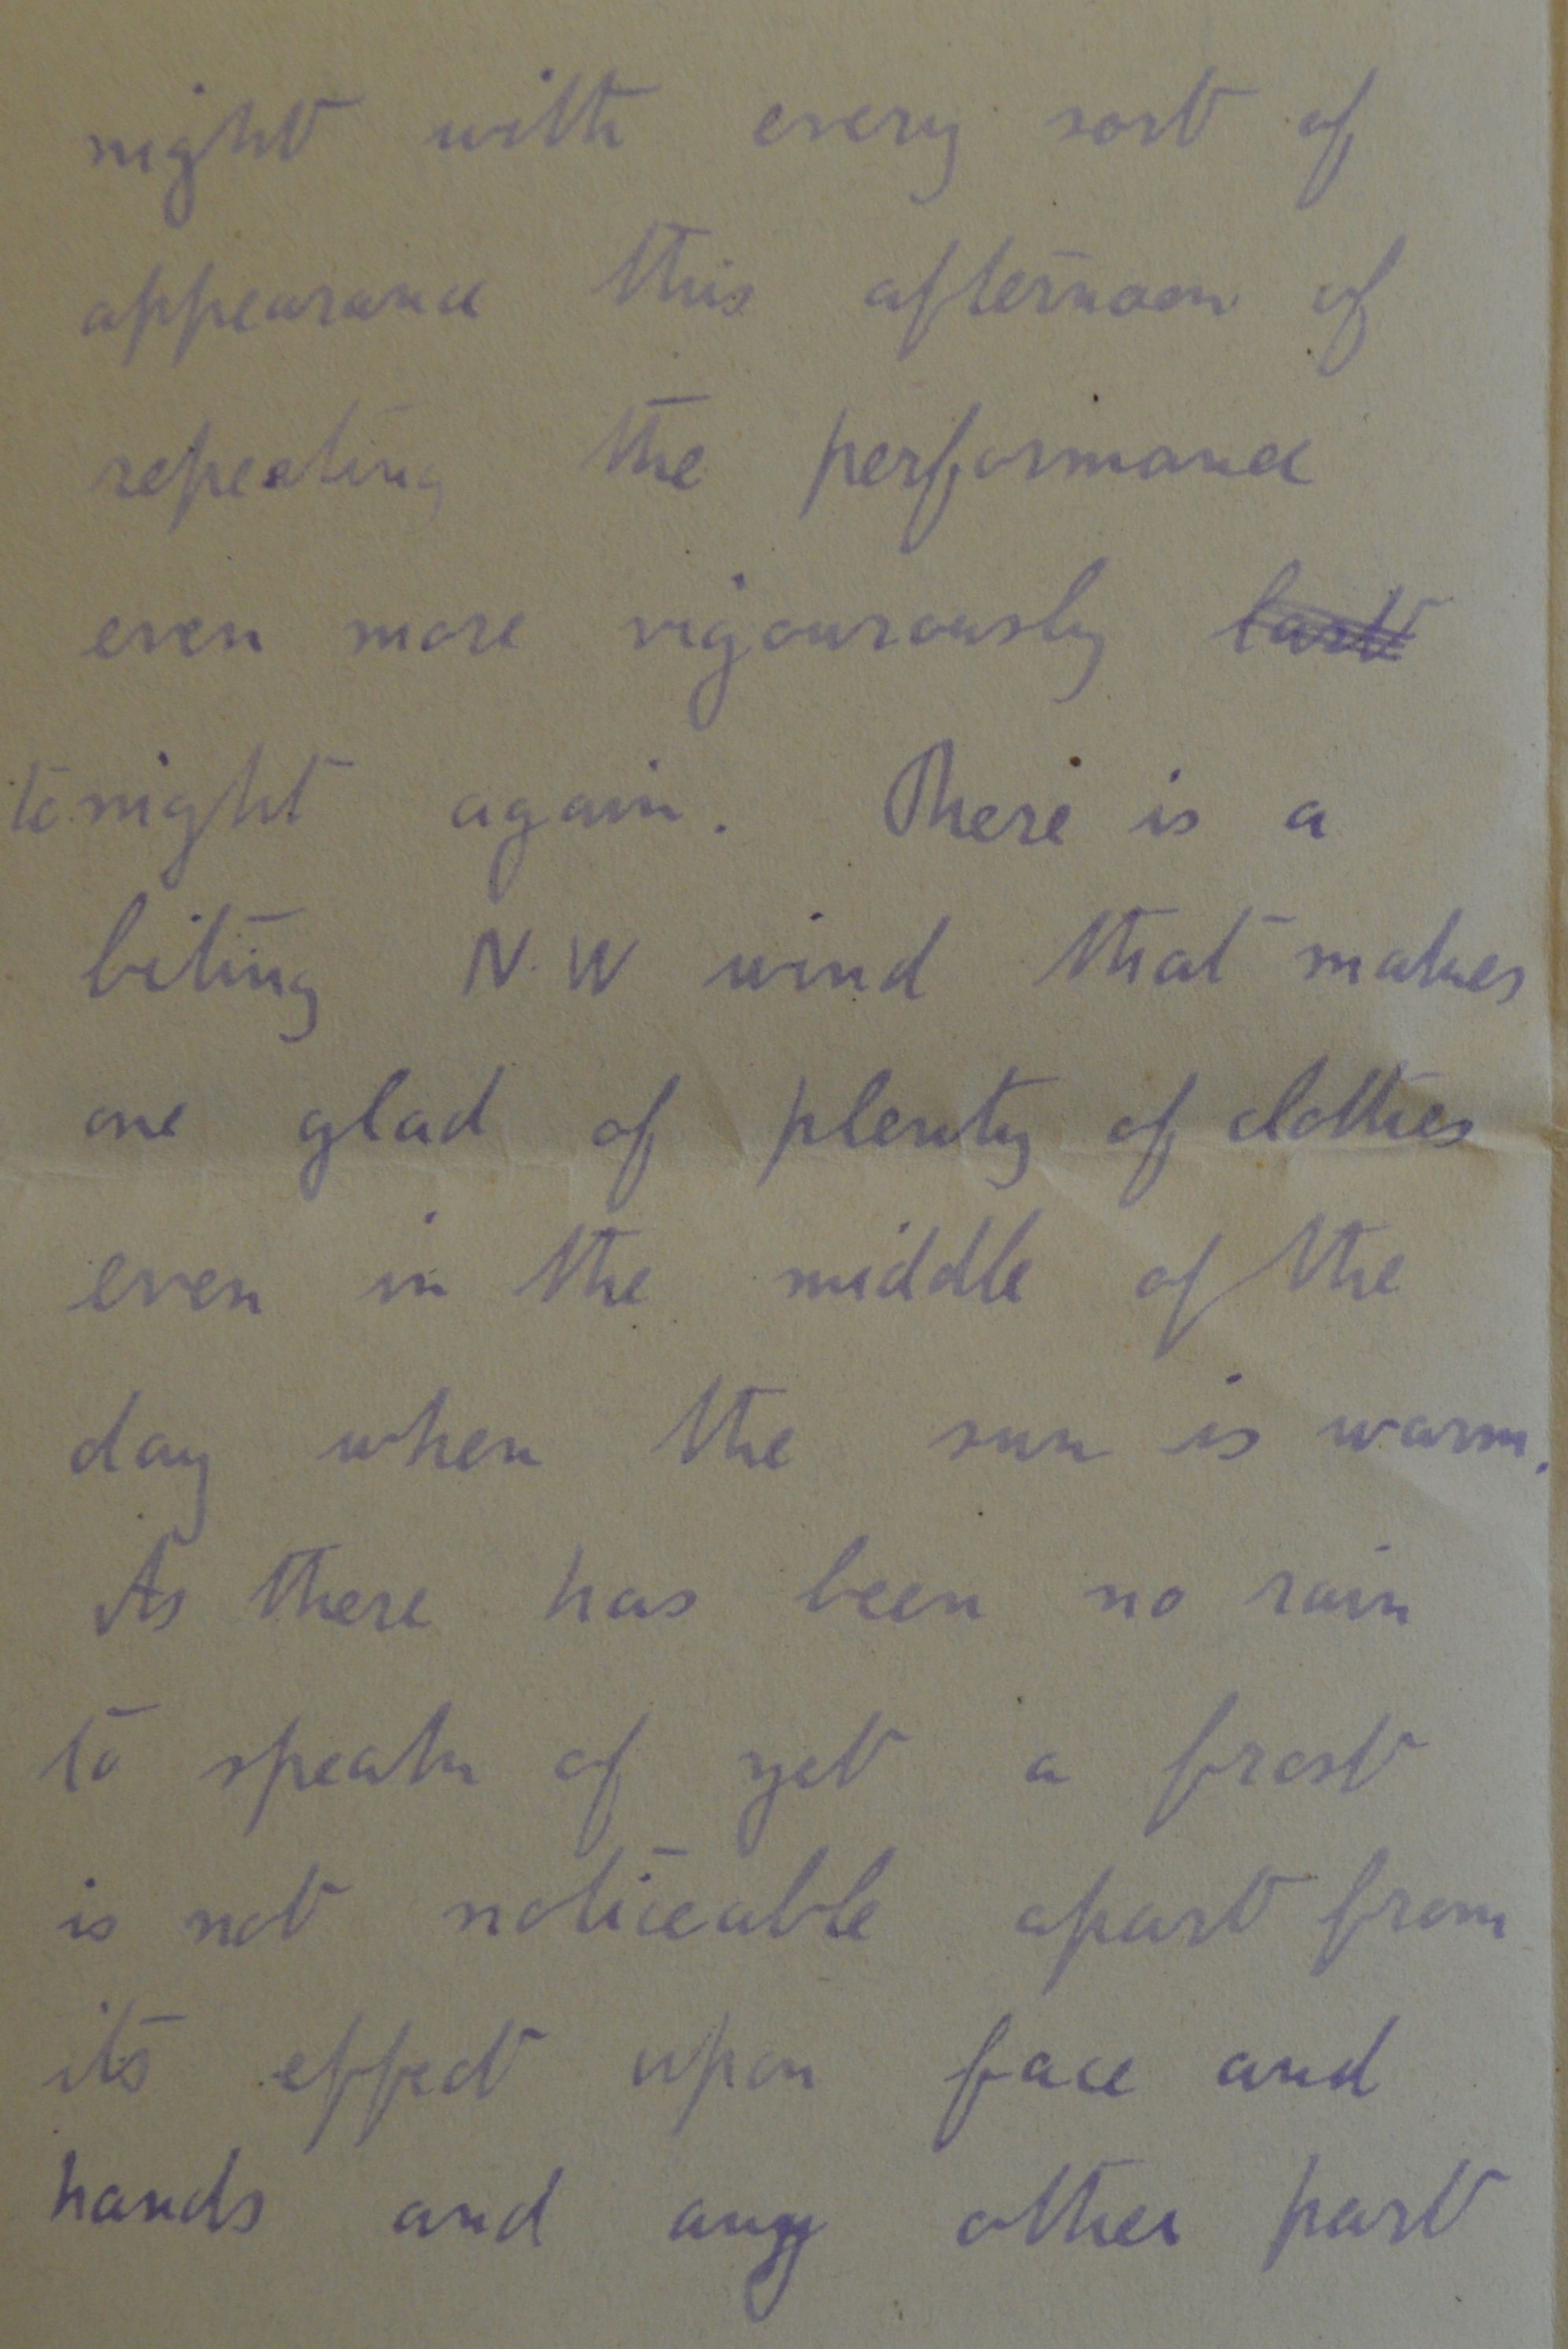 night with every sort of
appearance this afternoon of
repeating the performance
even more vigourously last
to night again. There is a
biting N.W wind that makes
one glad of plenty of clothes
even in the middle of the
day when the sun is warm.
As there has been no rain
to speak of yet a frost
is not noticeable apart from
its effect upon face and
hands and any other part